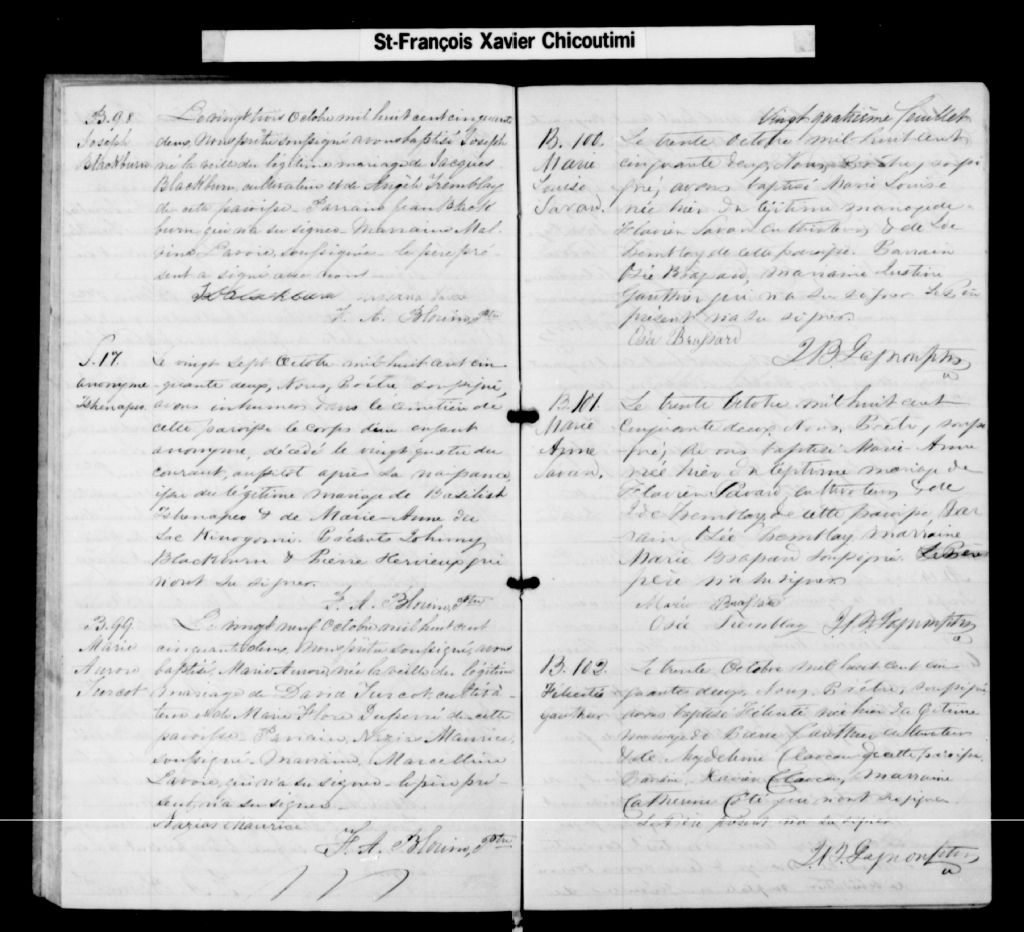 St-François Xavier Chicoutimi
B. 98
Joseph
Blackburn
Le vingt trois Octobre mil huit cent cinquante
deux, Nous prêtre soussigné avons baptisé Joseph
né la veille du légitime mariage de Jacques
Blackburn, cultivateur et de Angèle Tremblay
de cette paroisse - Parrain Jean Black
burn qui n'a su signer - Marraine Mal
vina Lavoie, soussignée - le père pré-
sent a signé avec nous
J. Blackburn
F. A. Blouin, Ptre
S. 17.
Anonyme
Ishenapes
Le vingt sept Octobre mil huit cent cin
quante deux, Nous, Prêtre soussigné,
avons inhumé dans le cimetière de
cette paroisse le corps d'un enfant
anonyme, décédé le vingt quatre du
courant, aussitot après sa naissance,
issu du légitime mariage de Basilish
Ishenapes & de Marie-Anne du
Lac Kinogomi. Présents Johnny
Blackburn & Pierre Hervieux qui
n'ont su signer.
F. A. Blouin, Ptre
B. 99
Marie
Auron
Turcot
Le vingt neuf Octobre mil huit cent
cinquante deux, Nous prêtre soussigné, avons
baptisé, Marie Auron, née la veille du légitime
mariage de David Turcot, cultiva-
teur et de Marie Flore Duperré de cette
paroisse Parrain, Nazire Maurice,
soussigné Marraine, Marcelline
Lavoie, qui n'a su signer - le père pré-
sent, n'a su signer
Nazias Maurice
F. A. Blouin, Ptre
Vingt quatrième feuillet
B. 100.
Marie
Louise
Savard.
Le trente Octobre mil huit cent
cinquante deux, Nous, Prêtre, soussi
gné, avons baptisé Marie Louise
née hier du légitime mariage de
Flavien Savard cultivateur & de
Tremblay de cette paroisse. Parrain
Osée Brassard, marraine Justine
Gauthier qui n'a su signer Le Père
présent n'a su signer.
Osé Brassard
J. B. Gagnon ptre
B. 101
Marie
Anne
Savard.
Le trente Octobre mil huit cent
cinquante deux, Nous, Prêtre, soussi
gné, avons baptisé Marie Anne
née hier du légitime mariage de
Flavien Savard, cultivateur & de
Tremblay de cette paroisse, Par
rain Osée Tremblay marraine
Marie Brassard soussigné. Le Père
père n'a su signer
Marie Brassard
Osée Tremblay J. B. Gagnon ptre
B. 102.
Félicité
Gauthier
Le trente Octobre mil huit cent cin
quante deux, Nous Prêtre, soussigné,
avons baptisé Félicité née hier du légitime
mariage de Pierre Gauthier cultivateur
& de Magdeleine Claveau de cette paroisse.
Parrain Xavier Claveau, Marraine
Catherine Côté qui n'ont su signer
Le Père présent n'a su signer
J. B. Gagnon ptre